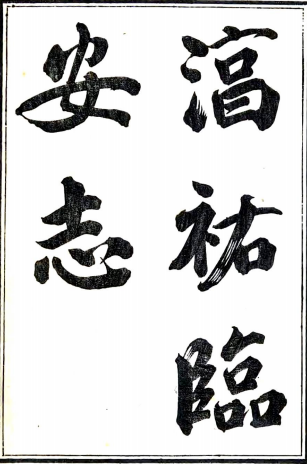 湻祐臨
安志